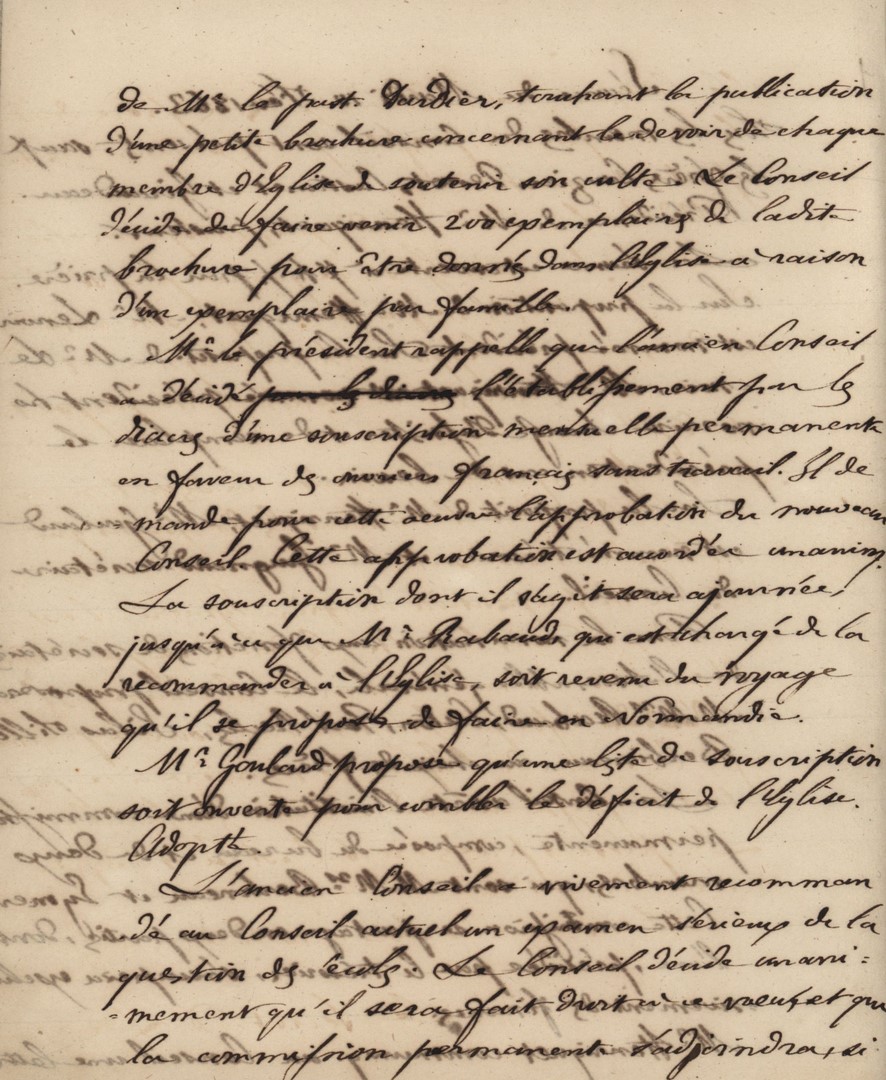 de Mr le past. Dardier, touchant la publication
d'une petite brochure concernant le devoir de chaque
membre d'Eglise de soutenir son culte. Le Conseil
décide de faire venir 200 exemplaires de ladite
brochure pour être donnés dans l'Eglise à raison
d'un exemplaire par famille.
Mr le président rappelle que l'ancien Conseil
a décidé par les diacres l'établissement par les
diacres d'une souscription mensuelle permanente
en faveur des ouvriers français sans travail. Il de
mande pour cette oeuvre l'approbation du nouveau
Conseil. Cette approbation est accordée unanimt.
La souscription dont il s'agit sera ajournée,
jusqu'à ce que Mr Rabaud, qui est chargé de la
recommander à l'Eglise, soit revenu du voyage
qu'il se propose de faire en Normandie.
Mr Goulard propose qu'une liste de souscription
soit ouverte pour combler le déficit de l'Eglise.
Adopté.
L'ancien Conseil a vivement recomman
dé au Conseil actuel un examen sérieux de la
question des écoles. Le Conseil décide unani=
=mement qu'il sera fait droit à ce voeu, et que
la commission permanente s'adjoindra, si